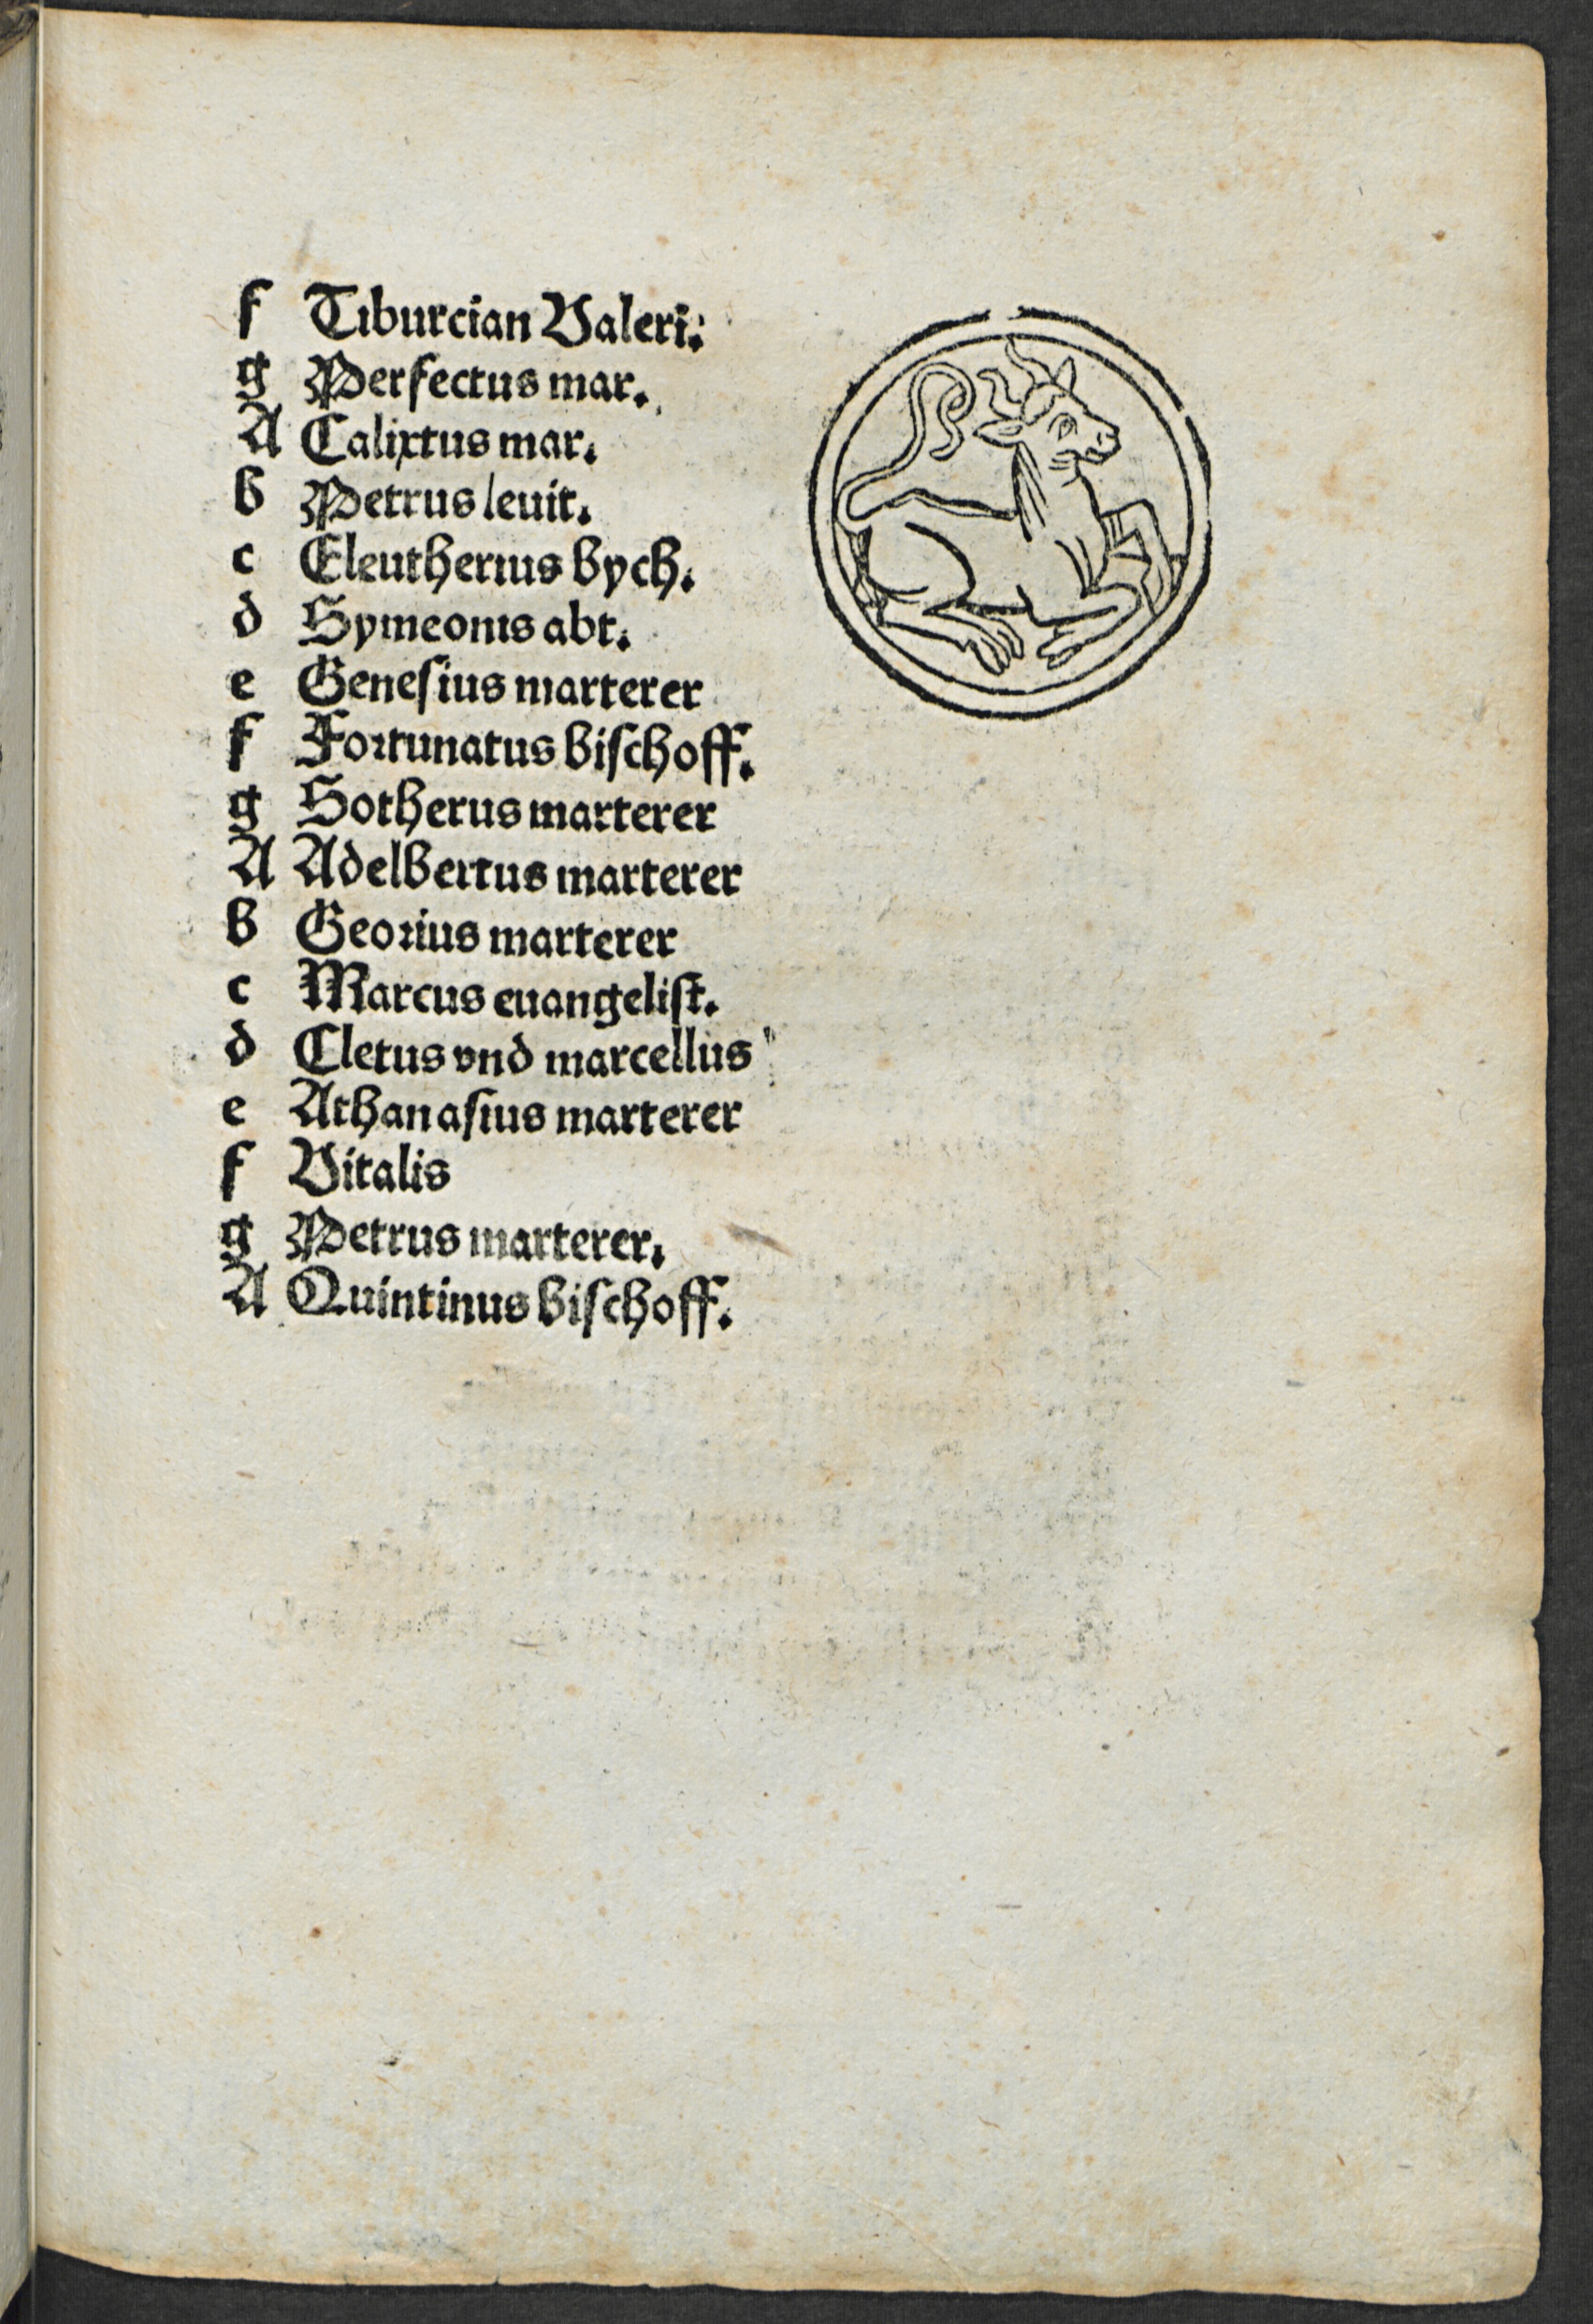 f Tiburcian Valeri.
g Perfectus mar.
A Calixtus mar.
b Petrus leuit.
c Eleutherius bych.
d Symeonis abt.
e Geneſius marterer
f Fortunatus biſchoff.
g Sotherus marterer
A Adelbertus marterer
b Georius marterer
c Marcus euangeliſt.
d Cletus vnd marcellus
e Athanaſius marterer
f Vitalis
g Petrus marterer.
A Quintinus biſchoff.